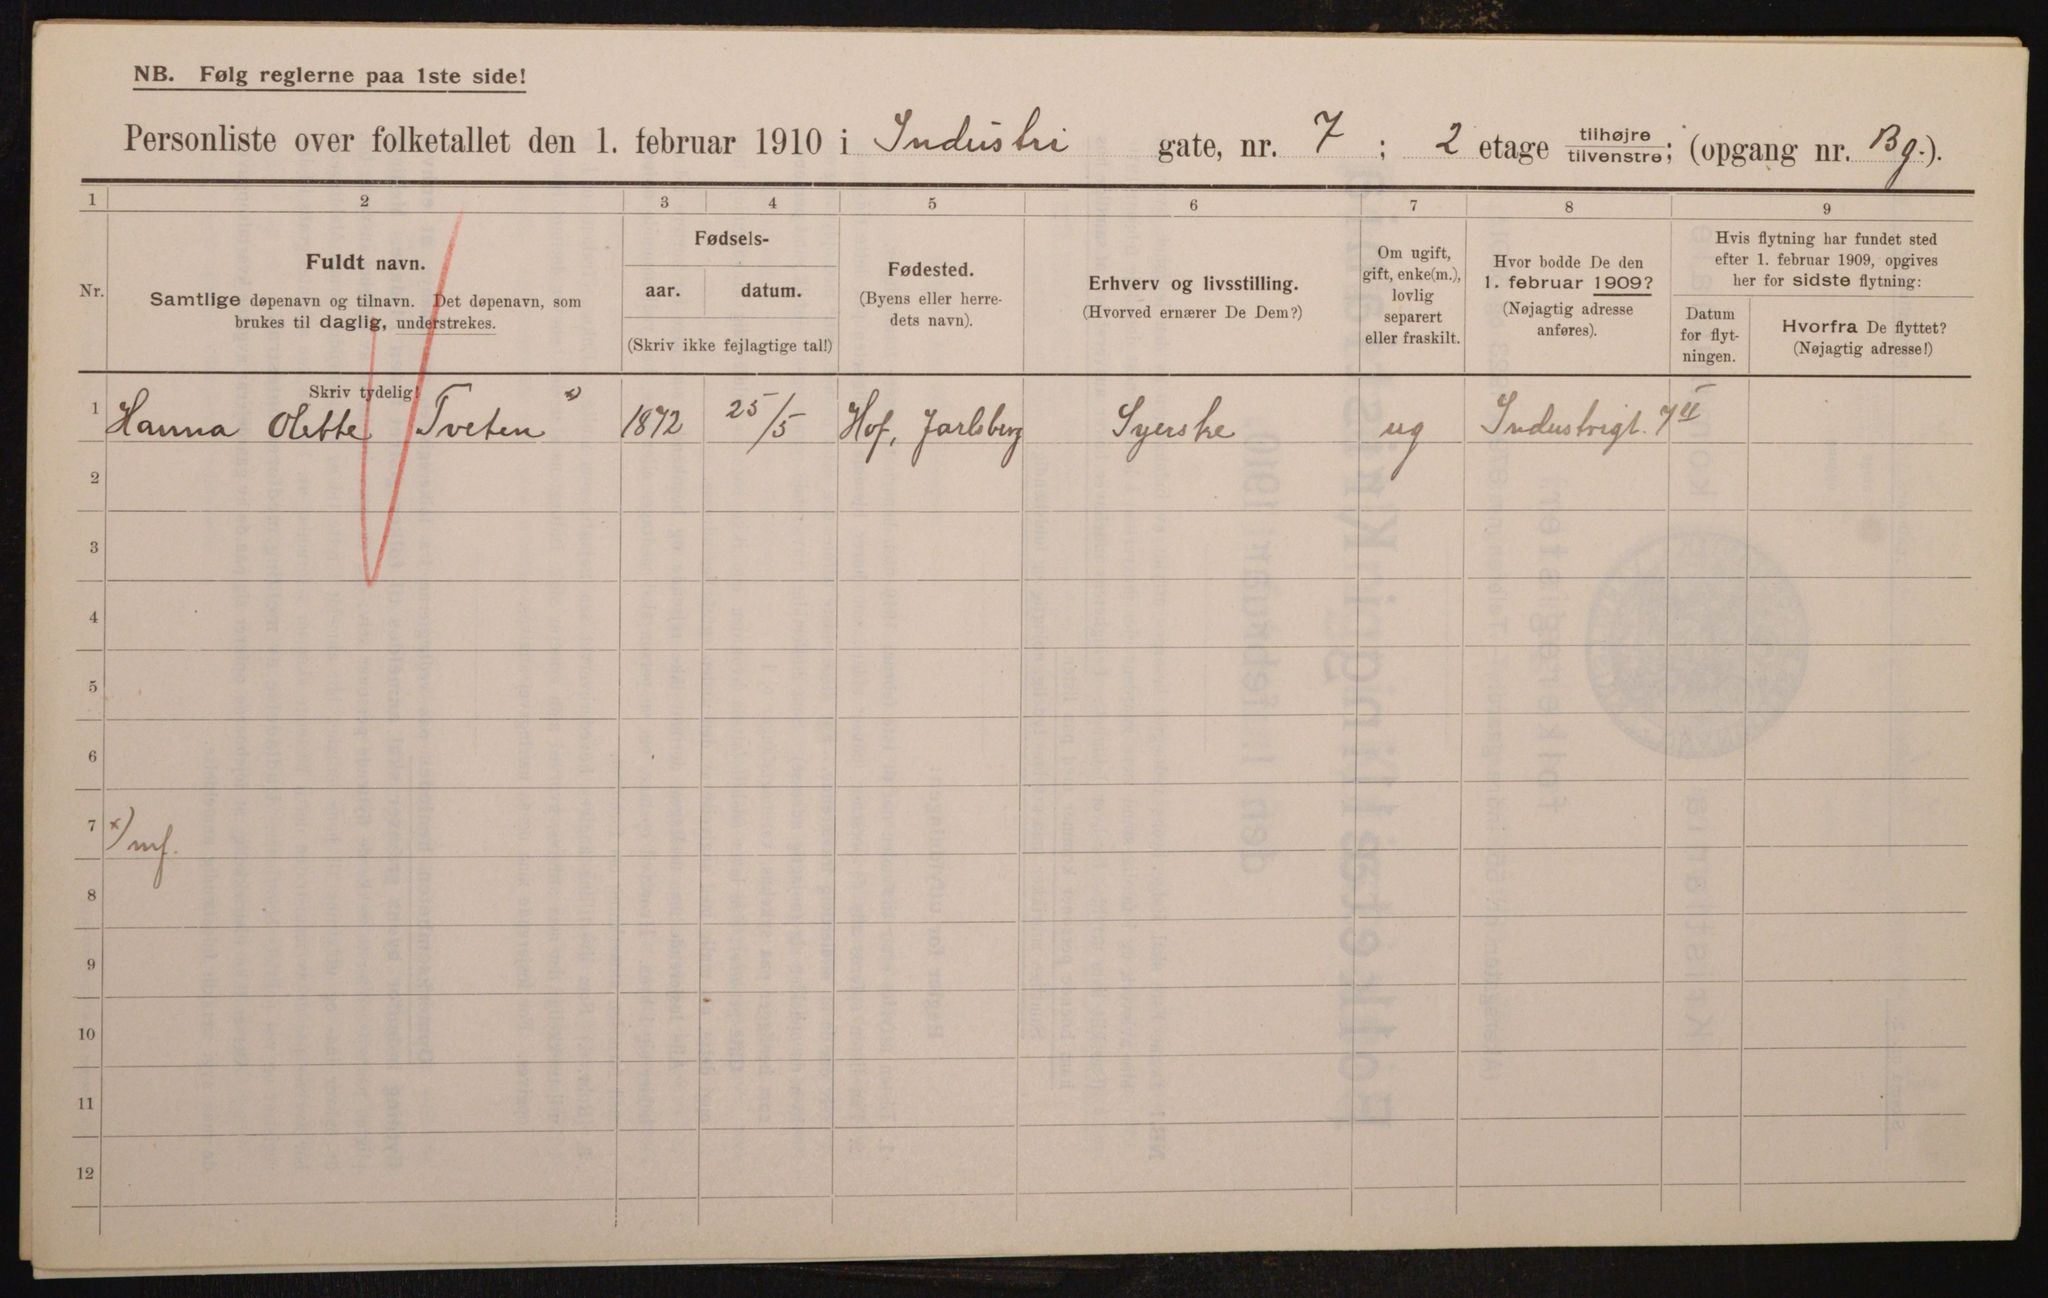 NB. Følg reglerne paa 1ste side!
Personliste over folketallet den 1. februar 1910 i Industri gate, nr. 7 ; 2 etage tilhøjre tilvenstre; (opgang nr. Bg.).
1 2 3 4 5 6 7 8 9
Nr.
Fuldt navn.
Samtlige døpenavn og tilnavn. Det døpenavn, som
brukes til daglig, understrekes.
Skriv tydelig!
Fødsels-
aar. datum.
(Skriv ikke fejlagtige tal!)
Fødested.
(Byens eller herre-
dets navn).
Erhverv og livsstilling.
(Hvorved ernærer De Dem?)
Om ugift,
gift, enke(m.),
lovlig
separert
eller fraskilt.
Hvor bodde De den
1. februar 1909?
(Nøjagtig adresse
anføres).
Hvis flytning har fundet sted
efter 1. februar 1909, opgives
her for sidste flytning:
Datum
for flyt-
ningen.
Hvorfra De flyttet?
(Nøjagtig adresse!)
1 Hanna Olette Tveten x) 1872 25/5 Hof, Jarlsberg Syerske ug Industrigt. 7 II
2
3
4
5
6
7 x) mf.
8
9
10
11
12